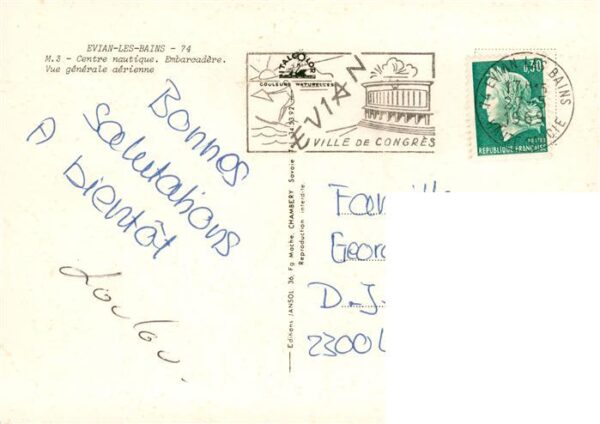 EVIAN-LES-BAINS - 74
M.3 - Centre nautique. Embarcadère.
Vue générale aérienne
COULEURS NATURELLES
EVIAN
VILLE DE CONGRÈS
EVIAN LES BAINS
0,30
POSTES
REPUBLIQUE FRANÇAISE
Bonnes
salutations
A bientôt
Loulou.
Editions JANSOL 36, Fg Mache, CHAMBERY Savoie
Reproduction interdite.
Famille
Georg
D.J.
2300